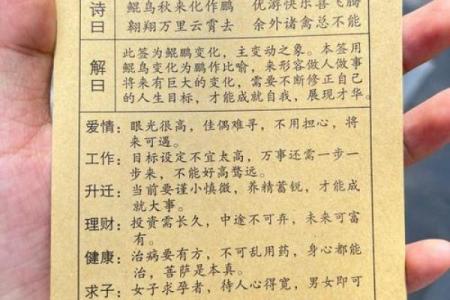 诗曰
鲲鸟秋来化作鹏　优游快乐喜飞腾
翱翔万里云霄去　余外诸禽总不能
解曰
此签为鲲鹏变化，主变动之象。本签用
鲲鸟变化为鹏作比喻，来形容做人做事
将来有巨大的变化，需要不断修正自己
的人生目标，才能成就自我，展现才华。
爱情：眼光很高，佳偶难寻，不用担心，将
来可遇。
工作：目标设定不宜太高，万事还需一步一
步来，不能好高骛远。
升迁：当前要谨小慎微，养精蓄锐，才能成
就大事。
理财：投资需长久，中途不可弃，未来可富
有。
健康：治病要有方，不可乱用药，身心都能
治，菩萨是本真。
求子：女子求孕者，待人心得宽，男女即可